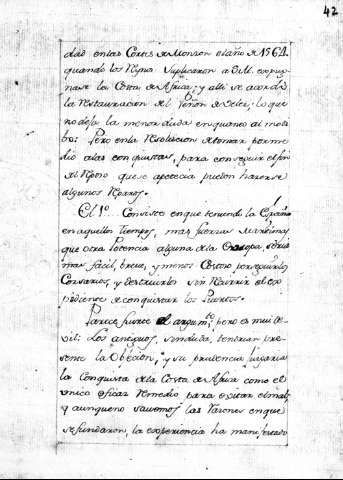 42
dad en las Cortes de Monzon el año de 1564
quando los Reynos suplicaron a S.M. expug
nase la Costa de Africa; y alli se acordó
la restauracion del Peñon de Velez, lo que
no deja la menor duda en quanto al moti
bo: Pero en la Resolucion de tomar por me
dio a las conquistas, para conseguir el fin
del Reposo que se apetecia pueden hacerse
algunos Reparos.
El 1º... Consiste en que teniendo la España
en aquellos Tiempos, mas fuerzas Maritimas
que otra Potencia alguna de la Europa, seria
mas facil, breve, y menos Costoso perseguir los
Corsarios, y destruirlos sin
pediente de conquistar los Puertos.
Parece fuerte el argumto pero es mui de
vil: Los antiguos, sin duda, tendrian pre
sente la Obgecion, y su prudencia juzgaria
la Conquista de la Costa de Africa como el
unico eficaz Remedio para evitar el mal;
y aunque no savemos las Razones en que
se fundaron, la experiencia ha manifestado